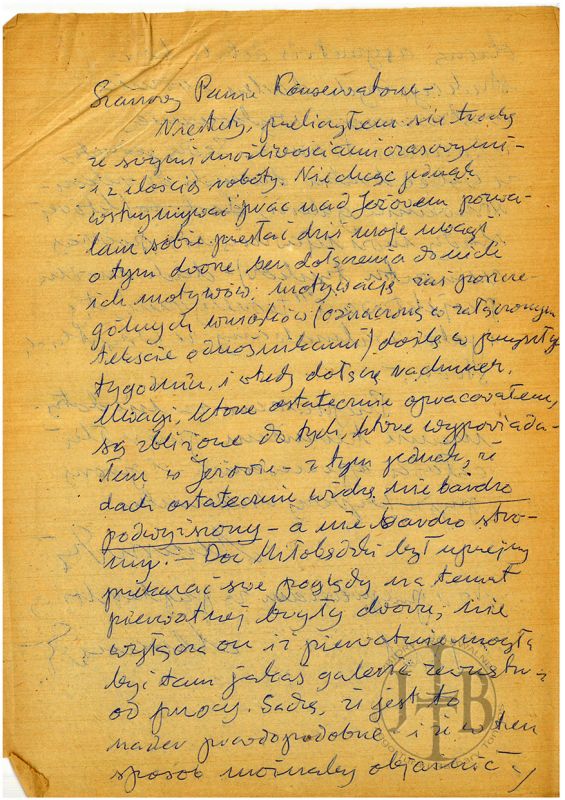 Szanowny Panie Konserwatorze –
Niestety, przeliczyłem się trochę
ze swymi możliwościami czasowymi –
i z ilością roboty. Nie chcąc jednak
wstrzymywać prac nad Jeżowem pozwa-
lam sobie przesłać dziś moje uwagi
o tym dworze bez dołączenia do nich
ich motywów. motywację zaś poszcze-
gólnych wniosków (oznaczoną w załączonym
tekście odnośnikami) doślę w przyszłym
tygodniu, i wtedy dołączę rachunek.
Uwagi, które ostatecznie opracowałem,
są zbliżone do tych, które wypowiada-
łem w Jeżowie – z tym jednak, że
dach ostatecznie widzę nie bardzo
podwyższony – a nie bardzo stro-
my. – Doc Miłobędzki był uprzejmy
przekazać swe poglądy na temat
pierwotnej bryły dworu; nie
wyłącza on iż pierwotnie mogła
być tam jakaś galeria zewnątrz
od frontu. Sądzę, że jest to
nader prawdopodobne i że w ten
sposób możnaby objaśnić